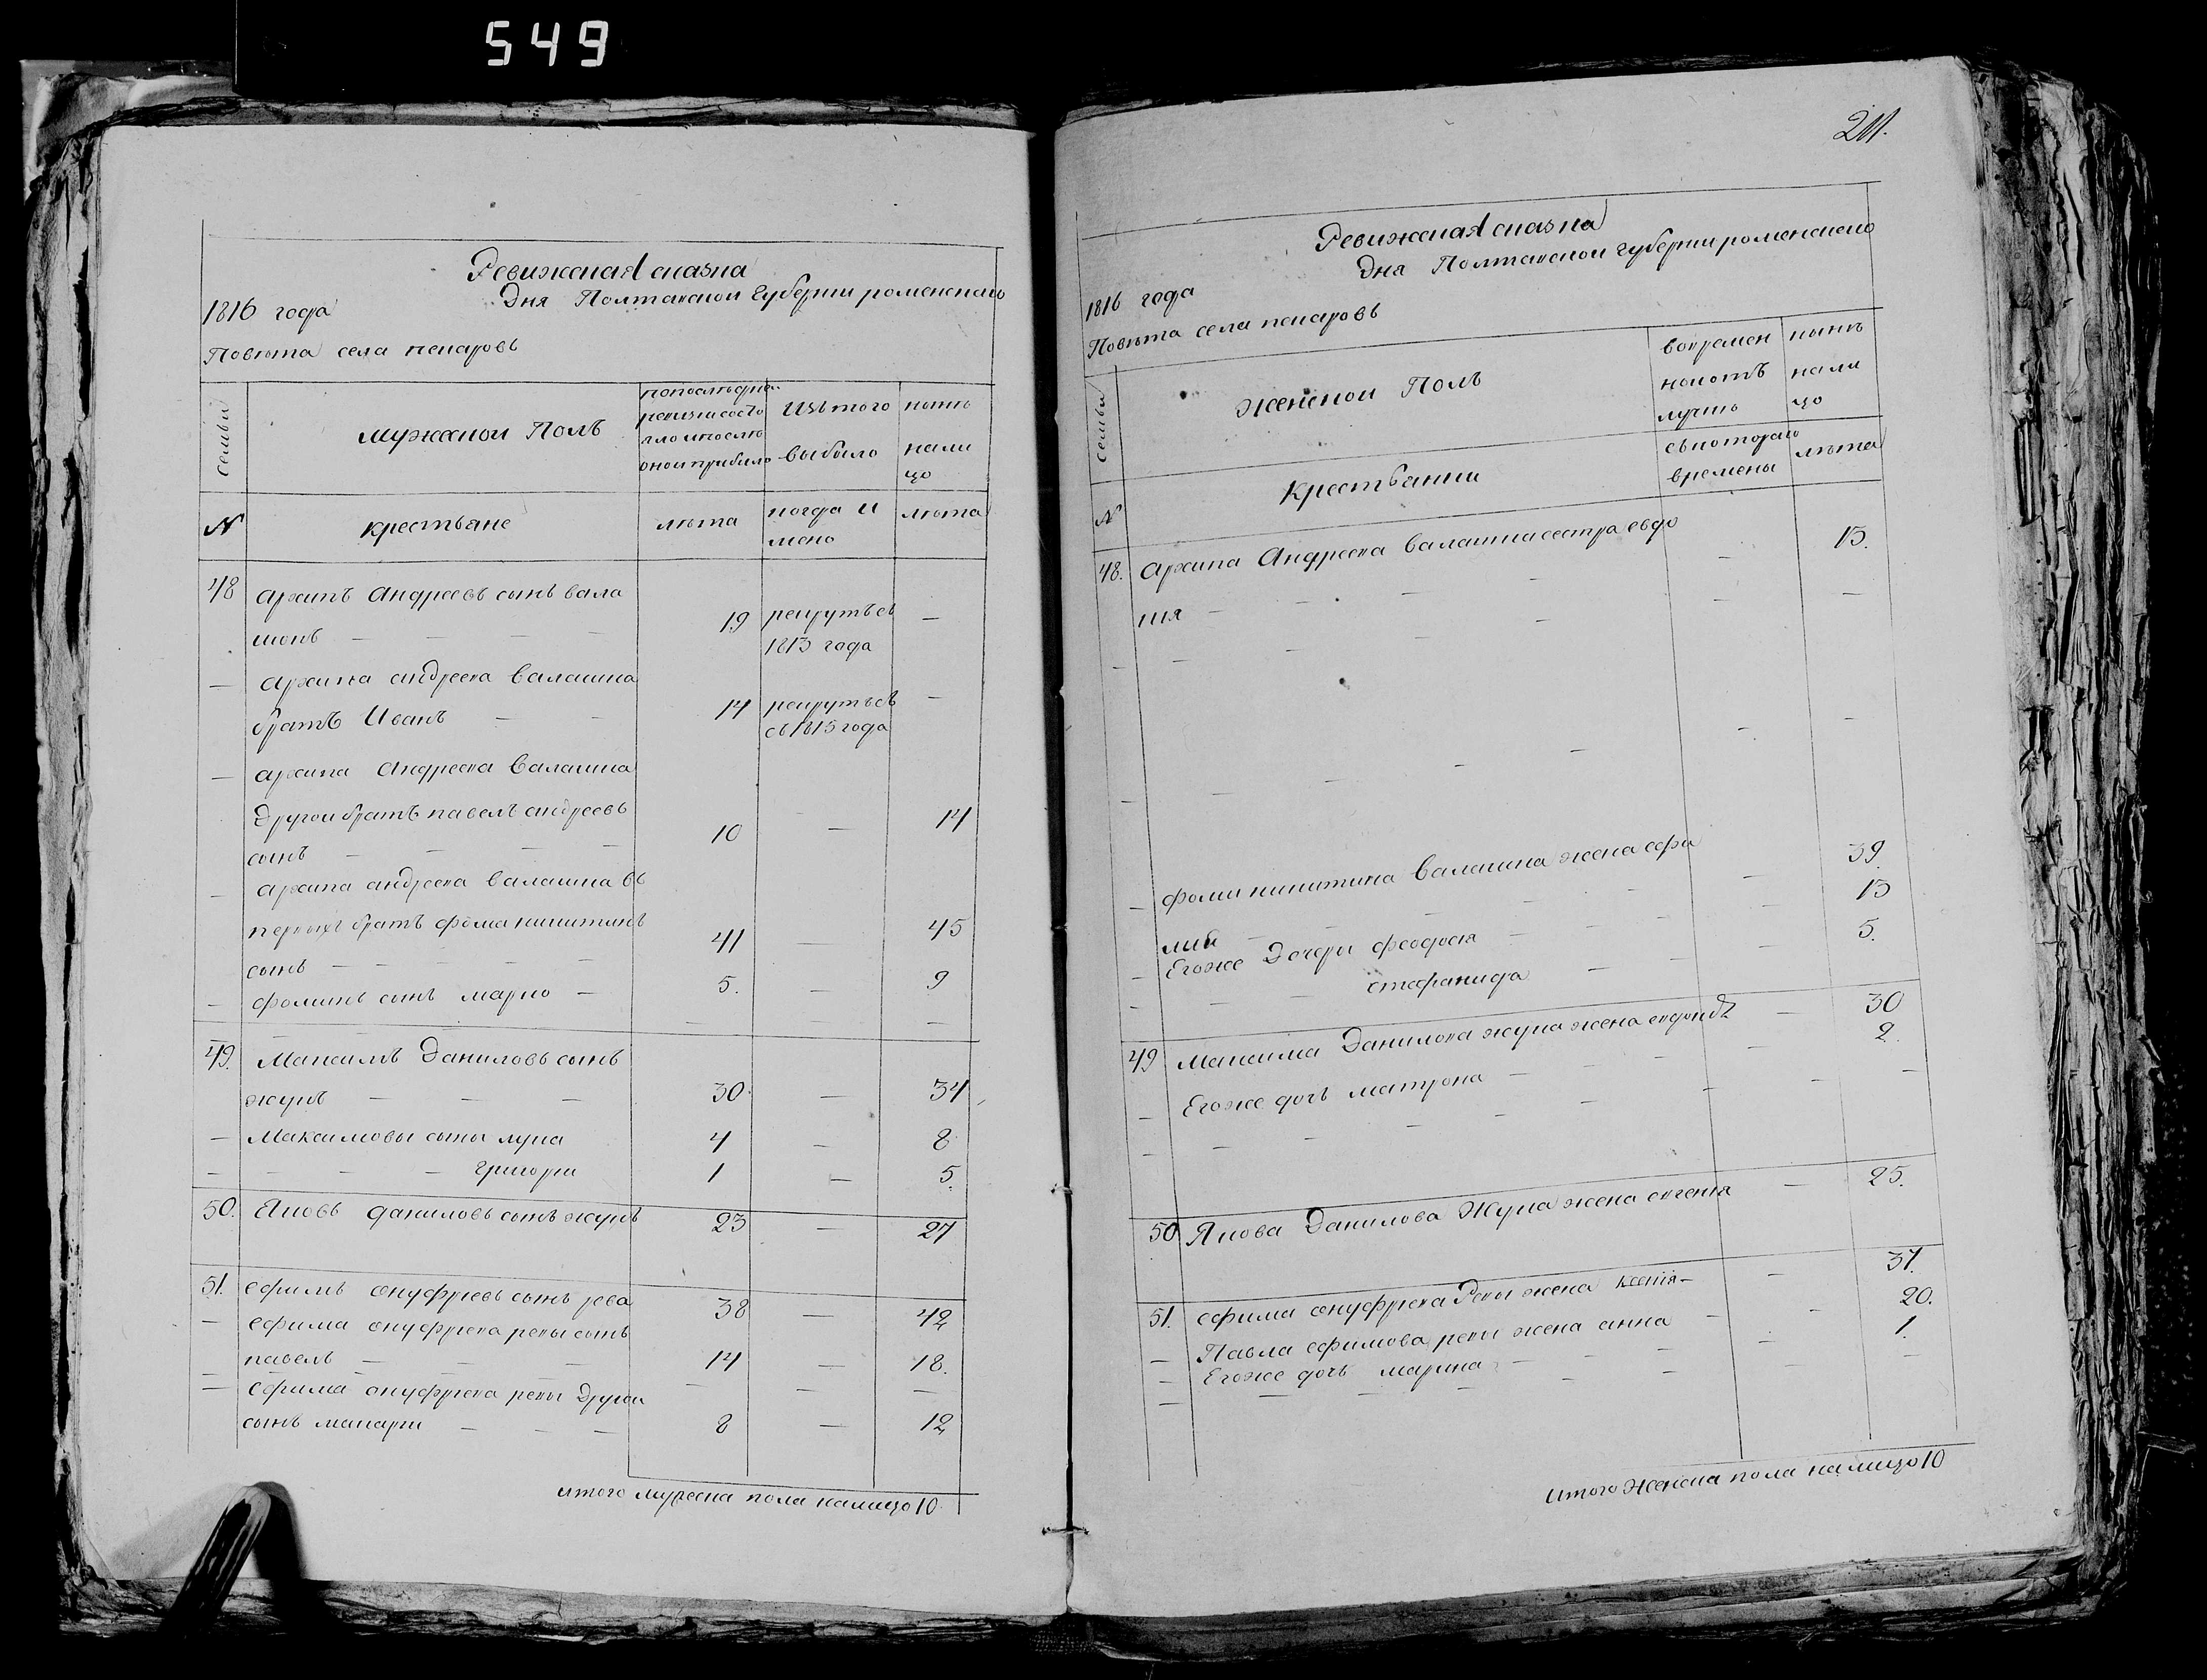 549
Ревижская сказка
1816 года
Дня Полтавской Губерни роменского
Повѣта села пекаровъ
семьи
мужской Полъ
попослѣдне
ревизи состо
яло и послѣ
оной прибыло
Изътого
выбыло
нынѣ
нали
цо
№
крестьяне
лѣта
когда и
мено
лѣта
48 архипъ Андреевъ сынъ вала
шонъ — — — — 19 рекрутъ съ —
1813 года
— архипа андреева валашна
братъ Иванъ — — 14 рекрутъ съ —
съ 1813 года
— архипа Андреева валашна
другой братъ павелъ андреевъ
сынъ — — — — 10 — 14
— архипа андреева валашна въ
первыхъ братъ фома никитинъ
сынъ — — — — 41 — 45
— фоминъ сынъ марко — 5. — 9
— — —
49. Максимъ Даниловъ сынъ
жукъ — — — 30. — 34
— Максимовы сыны лука 4 — 8
— — — — григори 1 — 5.
50. Яковъ даниловъ сынъ жукъ 23 — 27
51. ефимъ онуфриевъ сынъ рева 38 — 42
— ефима онуфриева ревы сынъ
— павелъ — — — 14 — 18.
— ефима онуфриева ревы другой — — —
сынъ макари — — — 8 — 12
итого мужеска пола налицо 10
211.
Ревижская сказка
Дня Полтавской губерни роменского
1816 года
Повѣта села пекаровъ
семьи
женской Полъ
вовремен
ной отъ
лучкѣ
нынѣ
нали
цо
№
Крестьянки
съкоторого
времены
лѣта
48. архипа Андреева валашна сестра евдо — 13.
кия — — — — — —
— — — — —
— — — — — —
— фоми никитина валашна жена ефи 39.
мия — — — — 13
— Егоже Дочери феодосия — — — 5.
— — — стефанида — —
49 максима Данилова жука жена евдокія — 30
— Егоже дочъ матрона — — — — 2.
— — — — — — — —
50 Якова Данилова Жука жена евгения — 25.
51. ефима онуфриева Ревы жена ксенія — — 37.
— Павла ефимова ревы жена анна — — 20.
— Егоже дочъ марина — — — — 1.
— — — — — —
итого Женска пола налицо 10